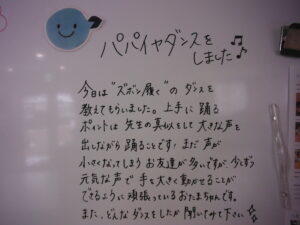 パパイヤダンスを
しました♪
今日は"ズボン履く"の ダンスを
教えてもらいました。上手に踊る
ポイントは 先生の真似をして 大きな声を
出しながら 踊ることです! まだ 声が
小さくなってしまう お友達が 多いですが、少しずつ
元気な声で 手を大きく動かせることが
できるように 頑張っている おたまちゃんです。
また、どんなダンスをしたか 聞いてみて下さい☆